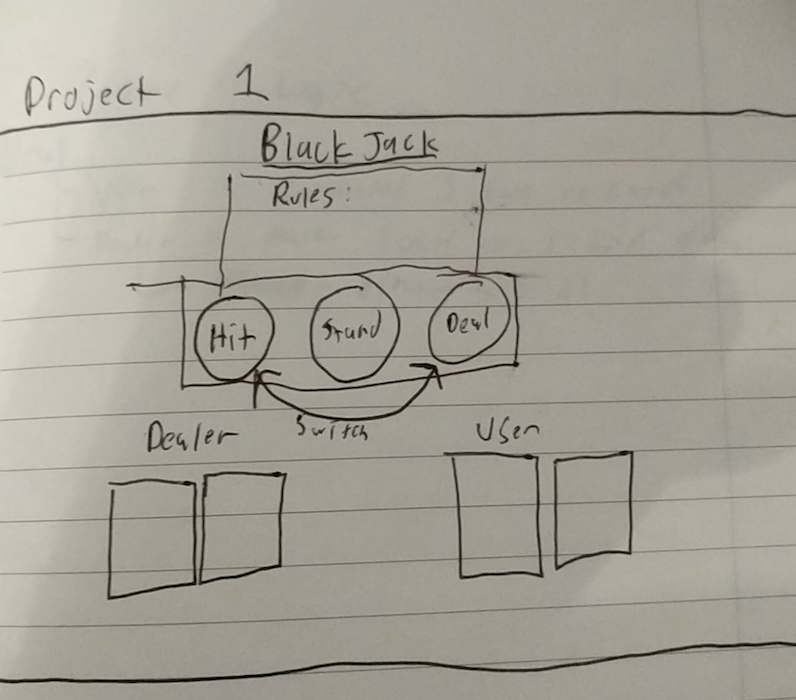 Project 1
Black Jack
Rules:
Hit Stand Deal
Switch
Dealer User